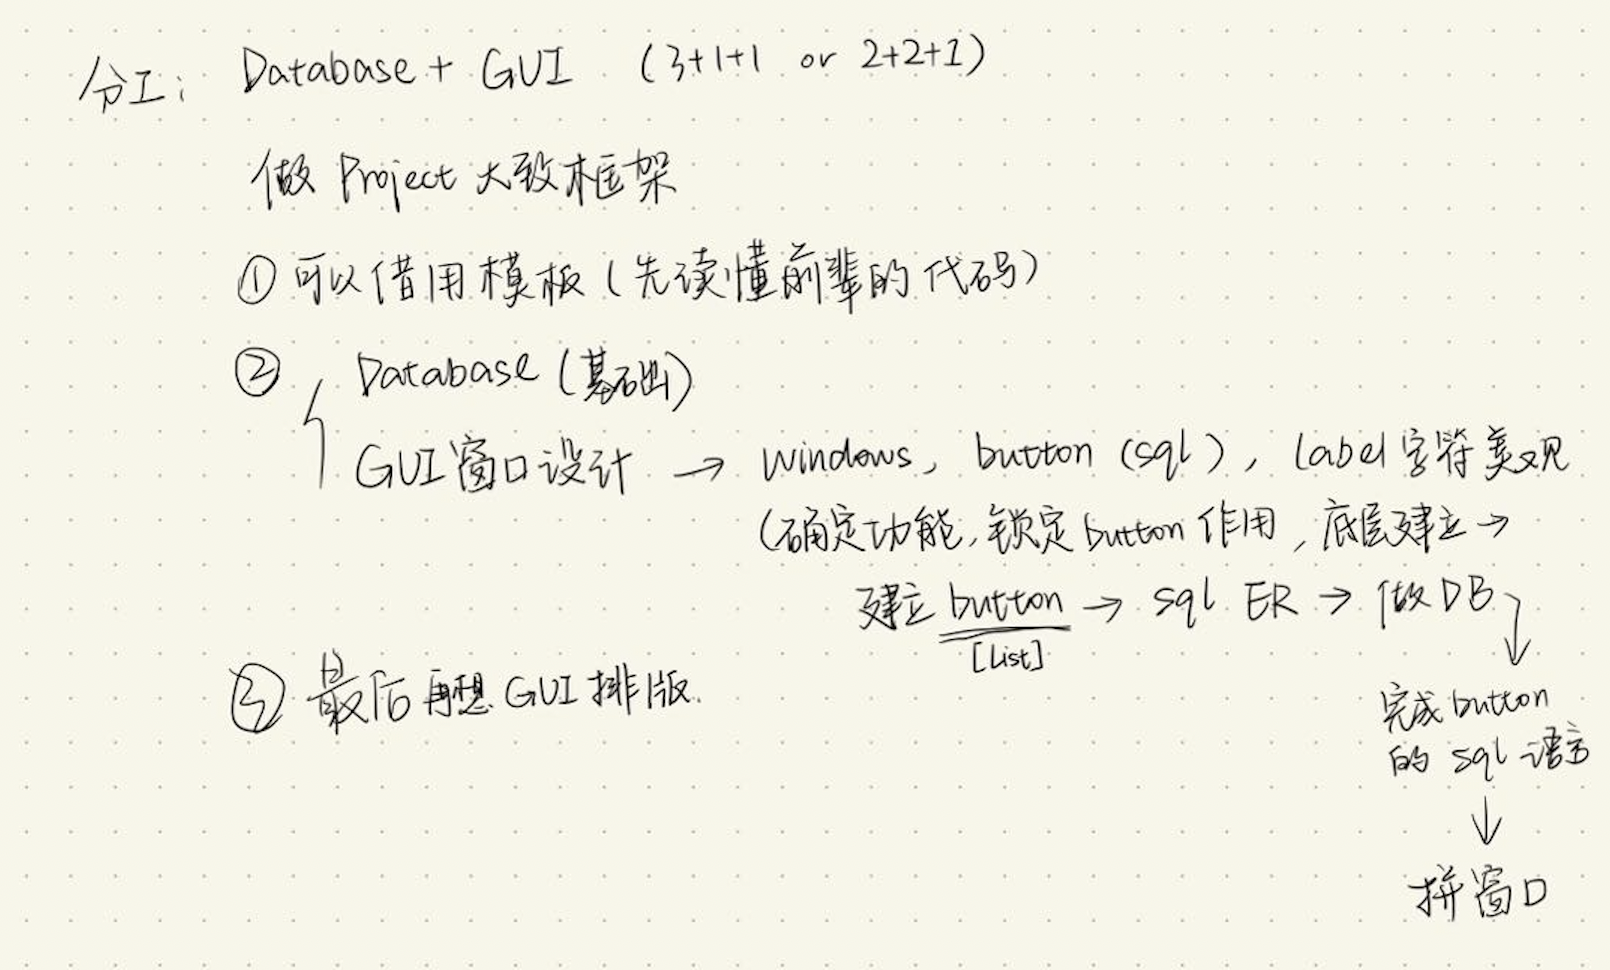 分工: Database + GUI (3+1+1 or 2+2+1)
做 Project 大致框架
① 可以借用模板 (先读懂前辈的代码)
② Database (基础)
GUI窗口设计 → windows, button (sql), label字符美观
(确定功能, 锁定button作用, 底层建立 →
建立 button → sql ER → 做DB
[List]
③ 最后再想 GUI 排版.
完成button
的 sql 语言
↓
拼窗口